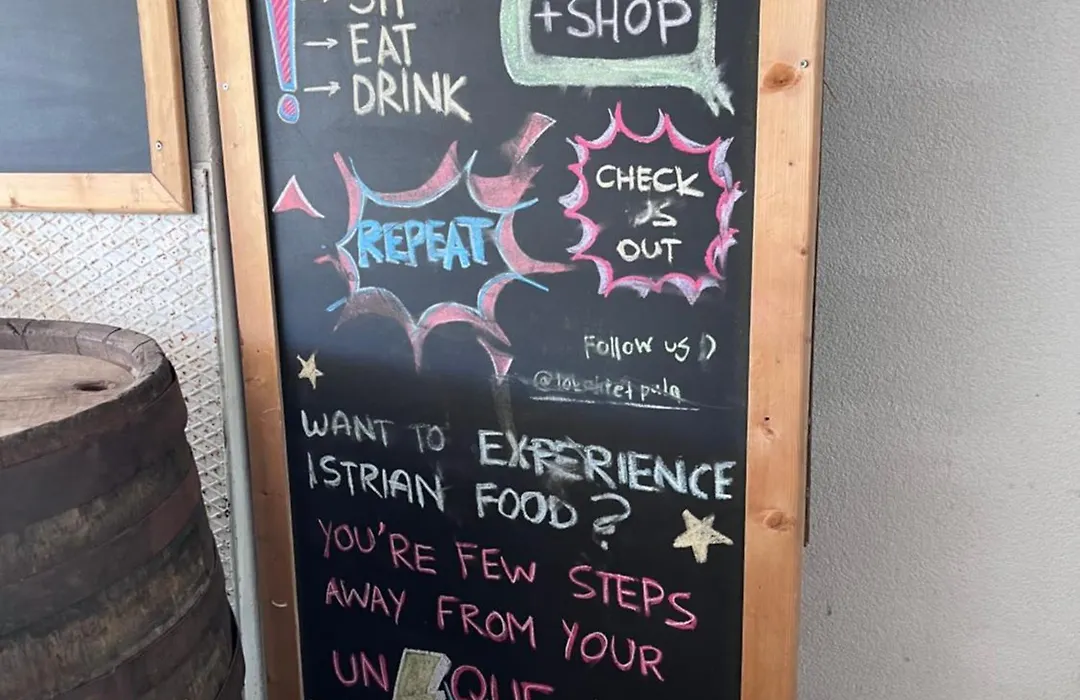 SIT
→ EAT
→ DRINK
+SHOP
REPEAT
CHECK
US
OUT
Follow us :)
WANT TO EXPERIENCE
ISTRIAN FOOD?
YOU'RE FEW STEPS
AWAY FROM YOUR
UN QUE